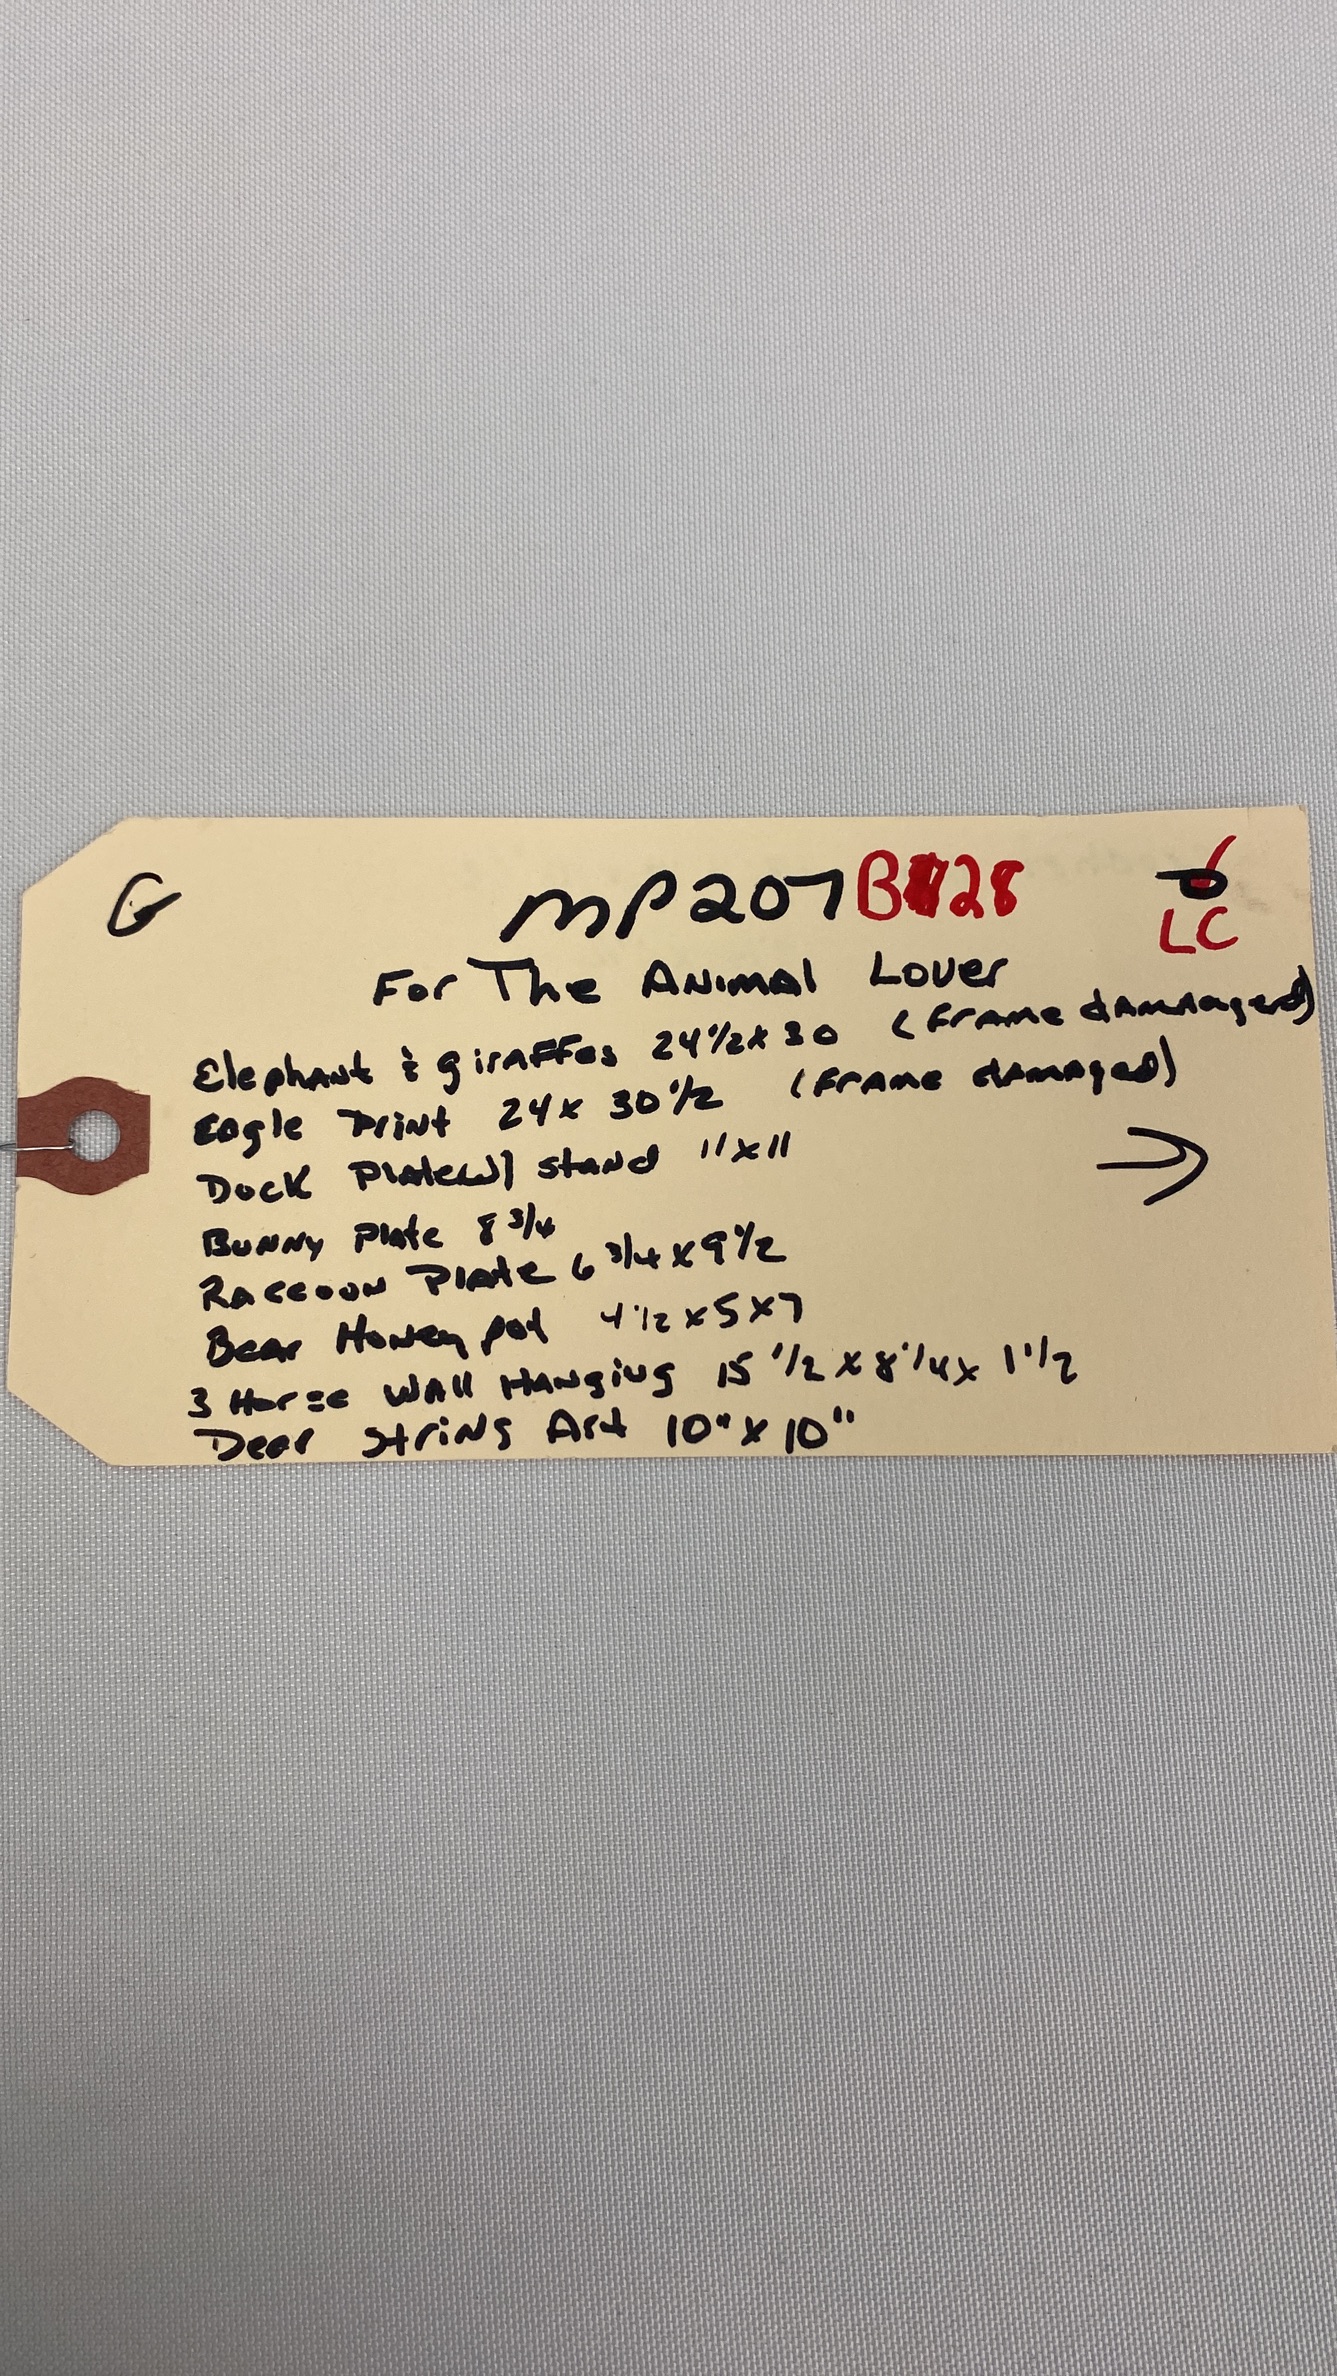 G MP207 B28
LC
For The Animal Lover
Elephant & giraffes 24 1/2 x 30 (frame damnaged)
Eagle Print 24 x 30 1/2 (frame damaged)
Duck Plate w/ stand 11 x 11
Bunny Plate 8 3/4
Raccoon Plate 6 3/4 x 9 1/2
Bear Honey pot 4 1/2 x 5 x 7
3 Horse Wall Hanging 15 1/2 x 8 1/4 x 1 1/2
Dear String Art 10" x 10"